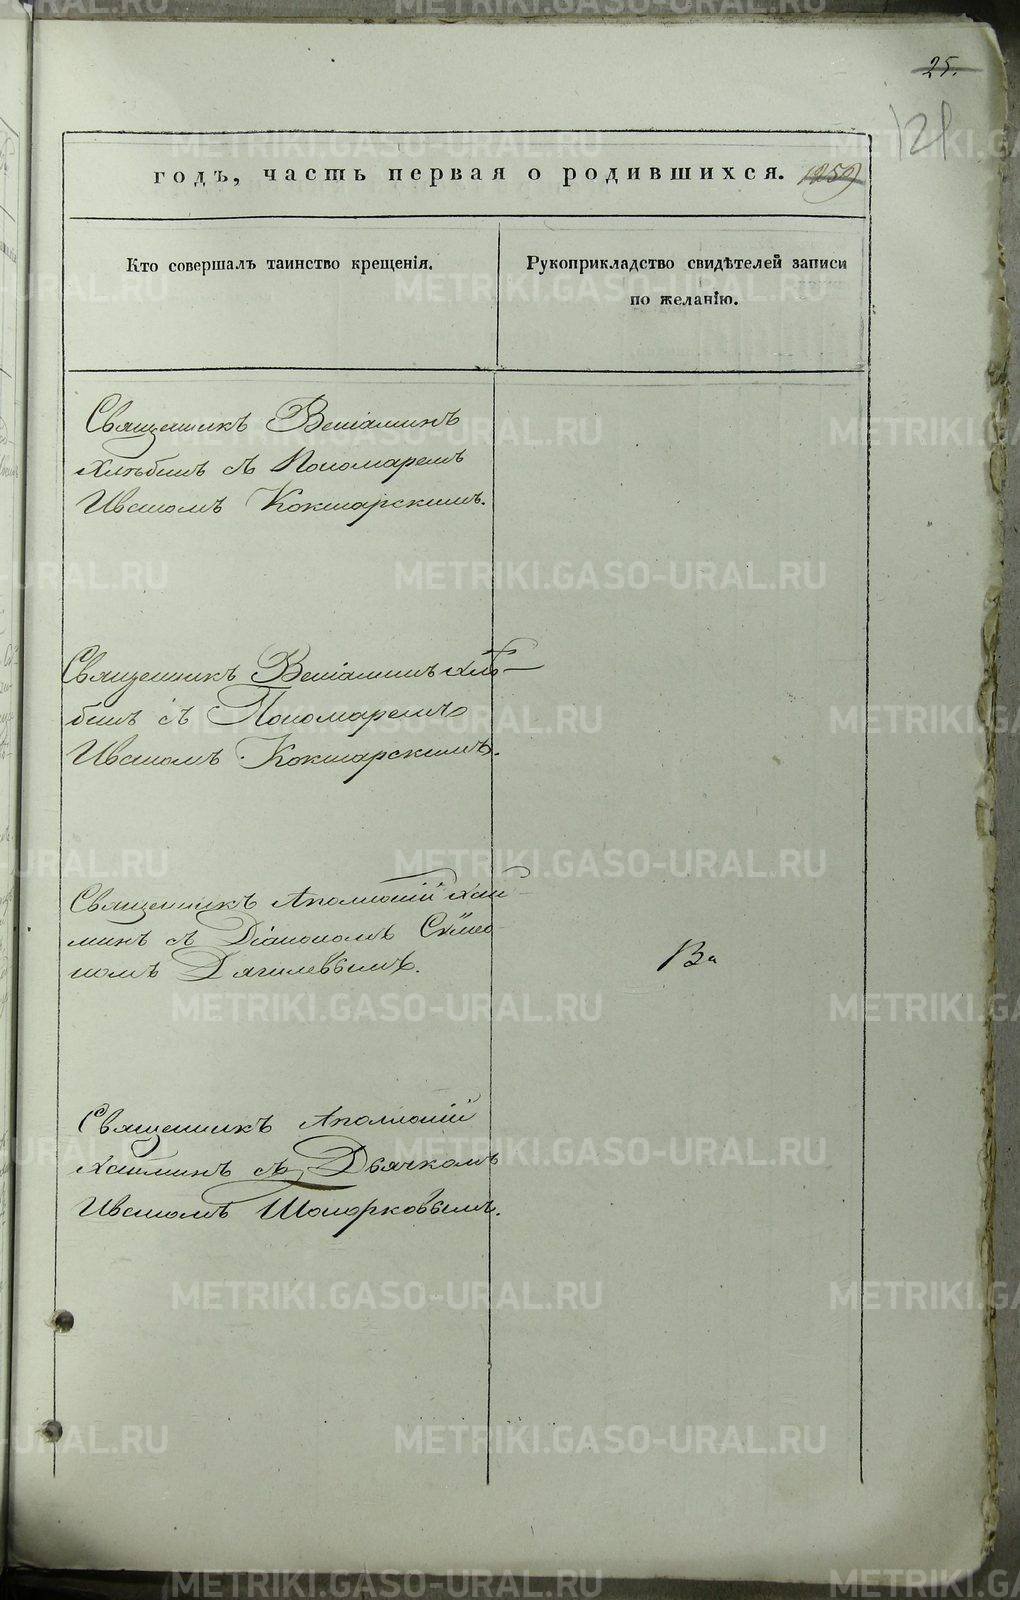 25.
121
годъ, часть первая о родившихся.
Кто совершалъ таинство крещенія.
Рукоприкладство свидѣтелей записи
по желанію.
Священникъ Веніаминъ
Хлѣбинъ съ Пономаремъ
Иваномъ Кокшарскимъ.
Священникъ Веніаминъ Хлѣ-
бинъ съ Пономаремъ
Иваномъ Кокшарскимъ.
Священникъ Аполлоній Хан-
минъ съ Діакономъ Сѵмео-
номъ Дягилевымъ.
Ва
Священникъ Аполлоній
Ханминъ съ Дьячкомъ
Иваномъ Шонорковымъ.
METRIKI.GASO-URAL.RU